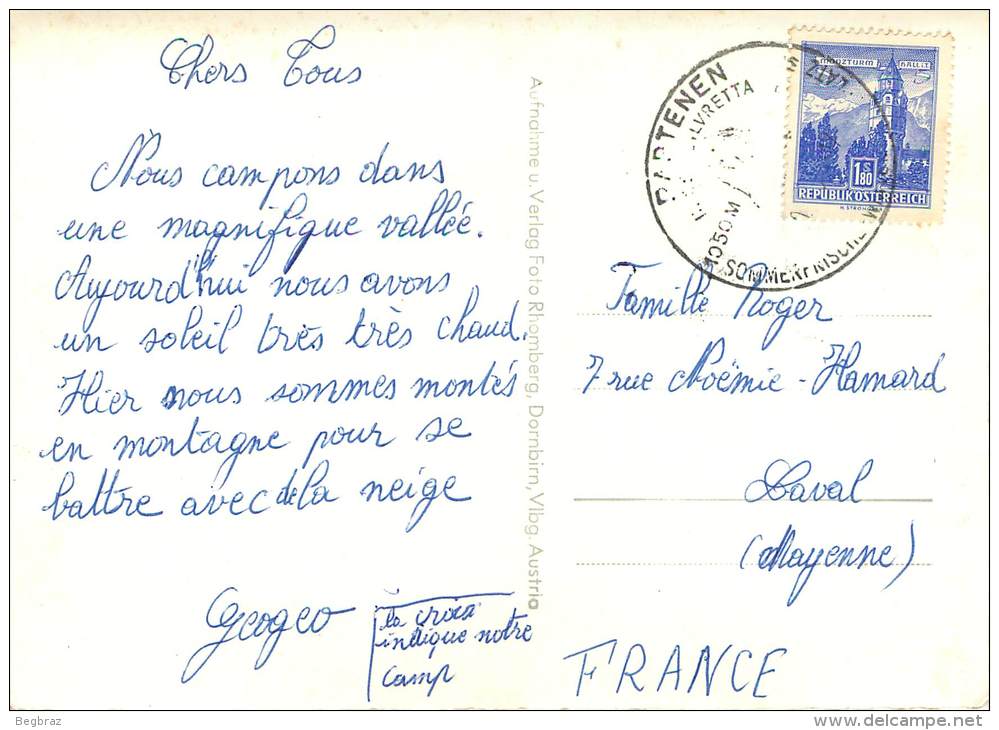 Chers Tous
Nous campons dans
une magnifique vallée.
Aujourd'hui nous avons
un soleil très très chaud.
Hier nous sommes montés
en montagne pour se
battre avec de la neige
Geogeo
la croix
indique notre
camp
Aufnahme u. Verlag Foto Rhomberg, Dornbirn, Vlbg. Austria
PARTENEN
1050 M
SOMMERFRISCHE
MÜNZTURM HALL I.T.
S
1.80
REPUBLIK ÖSTERREICH
Famille Roger
7 rue Noëmie-Hamard
Laval
(Mayenne)
FRANCE
Begbraz
delcampe.net